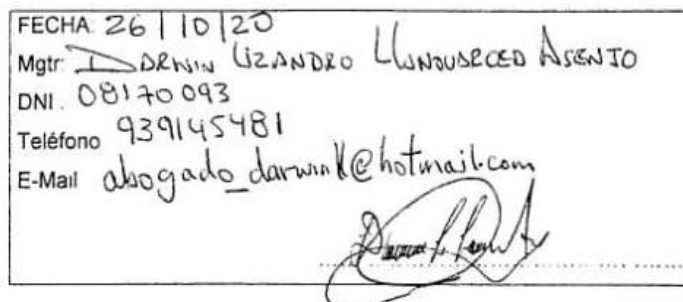 FECHA: 26/10/20
Mgtr: DARWIN LIZANDRO
DNI. 08170093
Teléfono 939145481
E-Mail abogado_darwinll@hotmail.com